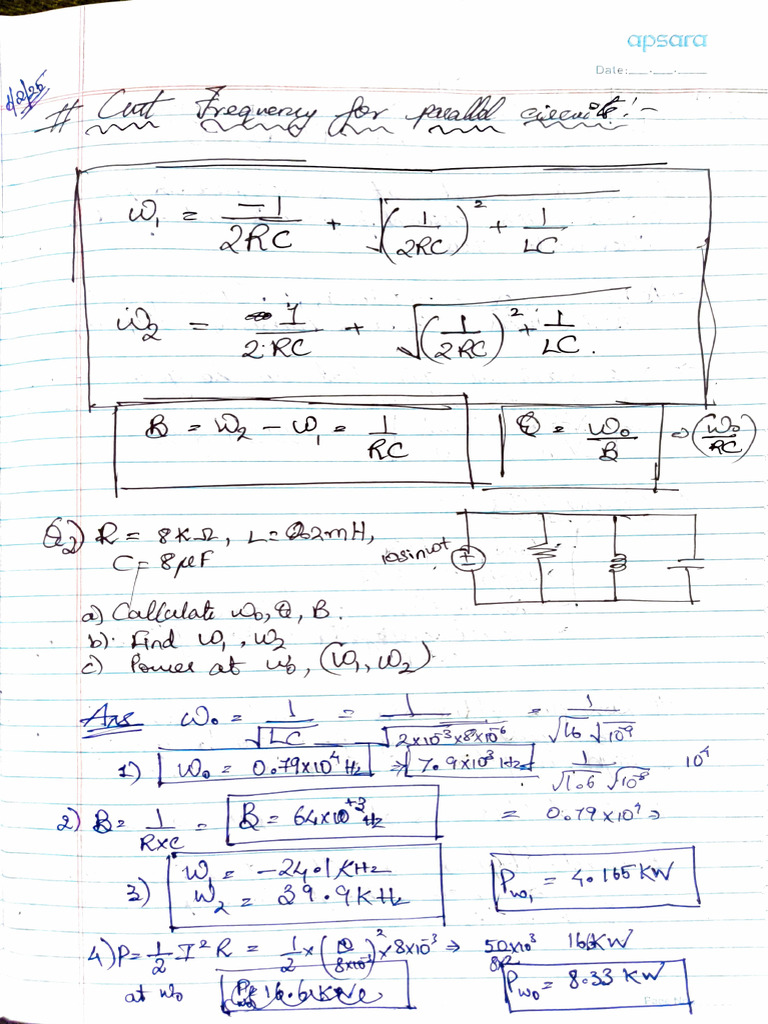 apsara
Date:
# Cutt Frequency for parallel circuits:-
ω₁ = -1/2RC + √((1/2RC)² + 1/LC)
ω₂ = 1/2·RC + √((1/2RC)² + 1/LC).
B = ω₂ - ω₁ = 1/RC
Q = ω₀/B ⇒ (ω₀/RC)
Q2) R = 8KΩ, L = 0.2mH,
C = 8μF
10sinωt
a) Callculate ω₀, Q, B.
b). Find ω₁, ω₂
c) Power at ω₀, (ω₁, ω₂).
Ans ω₀ = 1/√LC = 1/√2×10⁻³×8×10⁻⁶ = 1/√16 √10⁻⁹
1) ω₀ = 0.79×10⁴ Hz ⇒ 7.9×10³ Hz 1/√1.6 √10⁻⁸ 10⁴
= 0.79×10⁴ ⇒
2) B = 1/R×C = B = 64×10⁺³ Hz
3) ω₁ = -24.1 KHz
ω₂ = 39.9 KHz
Pω₁ = 4.165 KW
4) P = 1/2 I² R = 1/2 × ( )² × 8×10⁻³ ⇒ 50×10³ 166KW
at ω₀
Pω₀ = 8.33 KW